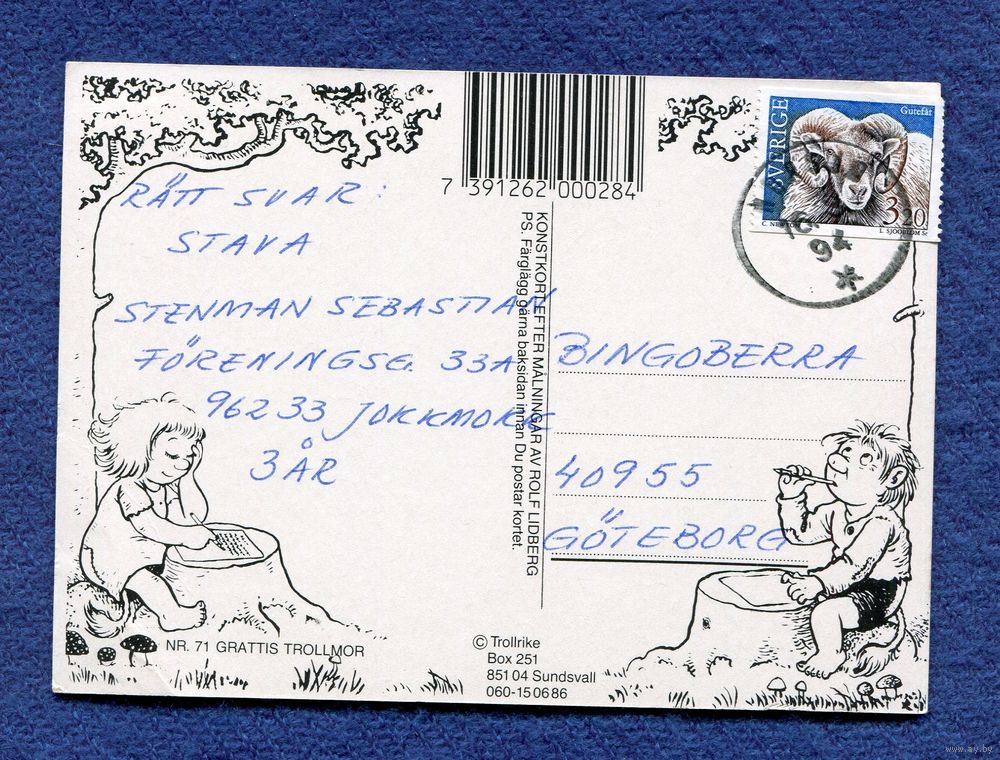 7 391262 000284
SVERIGE
Gutefår
3.20
C. NEWTON
L. SJÖÖBLOM Sc
94
RÄTT SVAR:
STAVA
STENMAN SEBASTIAN
FÖRENINGSG. 33A
962 33 JOKKMOKK
3 ÅR
KONSTKORT EFTER MÅLNINGAR AV ROLF LIDBERG
PS. Färglägg gärna baksidan innan Du postar kortet.
BINGOBERRA
40955
GÖTEBORG
NR. 71 GRATTIS TROLLMOR
© Trollrike
Box 251
851 04 Sundsvall
060-15 06 86
www.ay.by